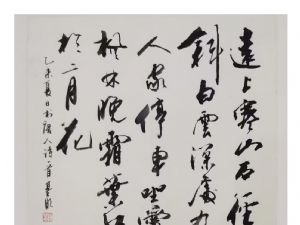 遠上寒山石徑
斜白雲深處有
人家停車坐愛
楓林晚霜葉紅
於二月花
乙未夏日 唐人詩一首